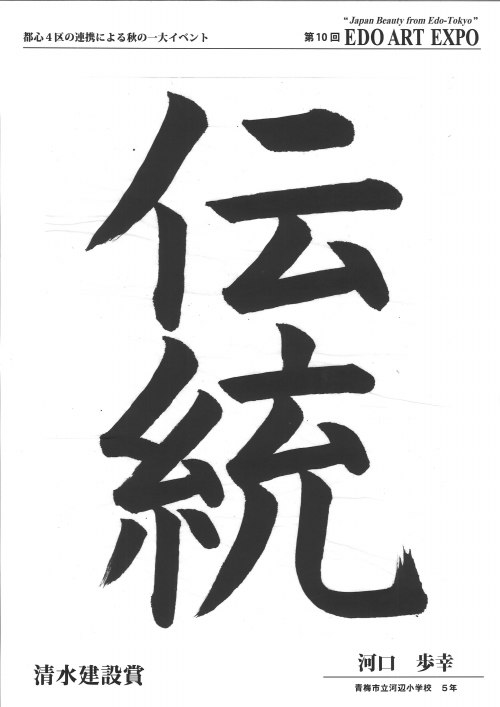 "Japan Beauty from Edo-Tokyo"
都心4区の連携による秋の一大イベント
第10回 EDO ART EXPO
伝統
清水建設賞
河口 歩幸
青梅市立河辺小学校 5年